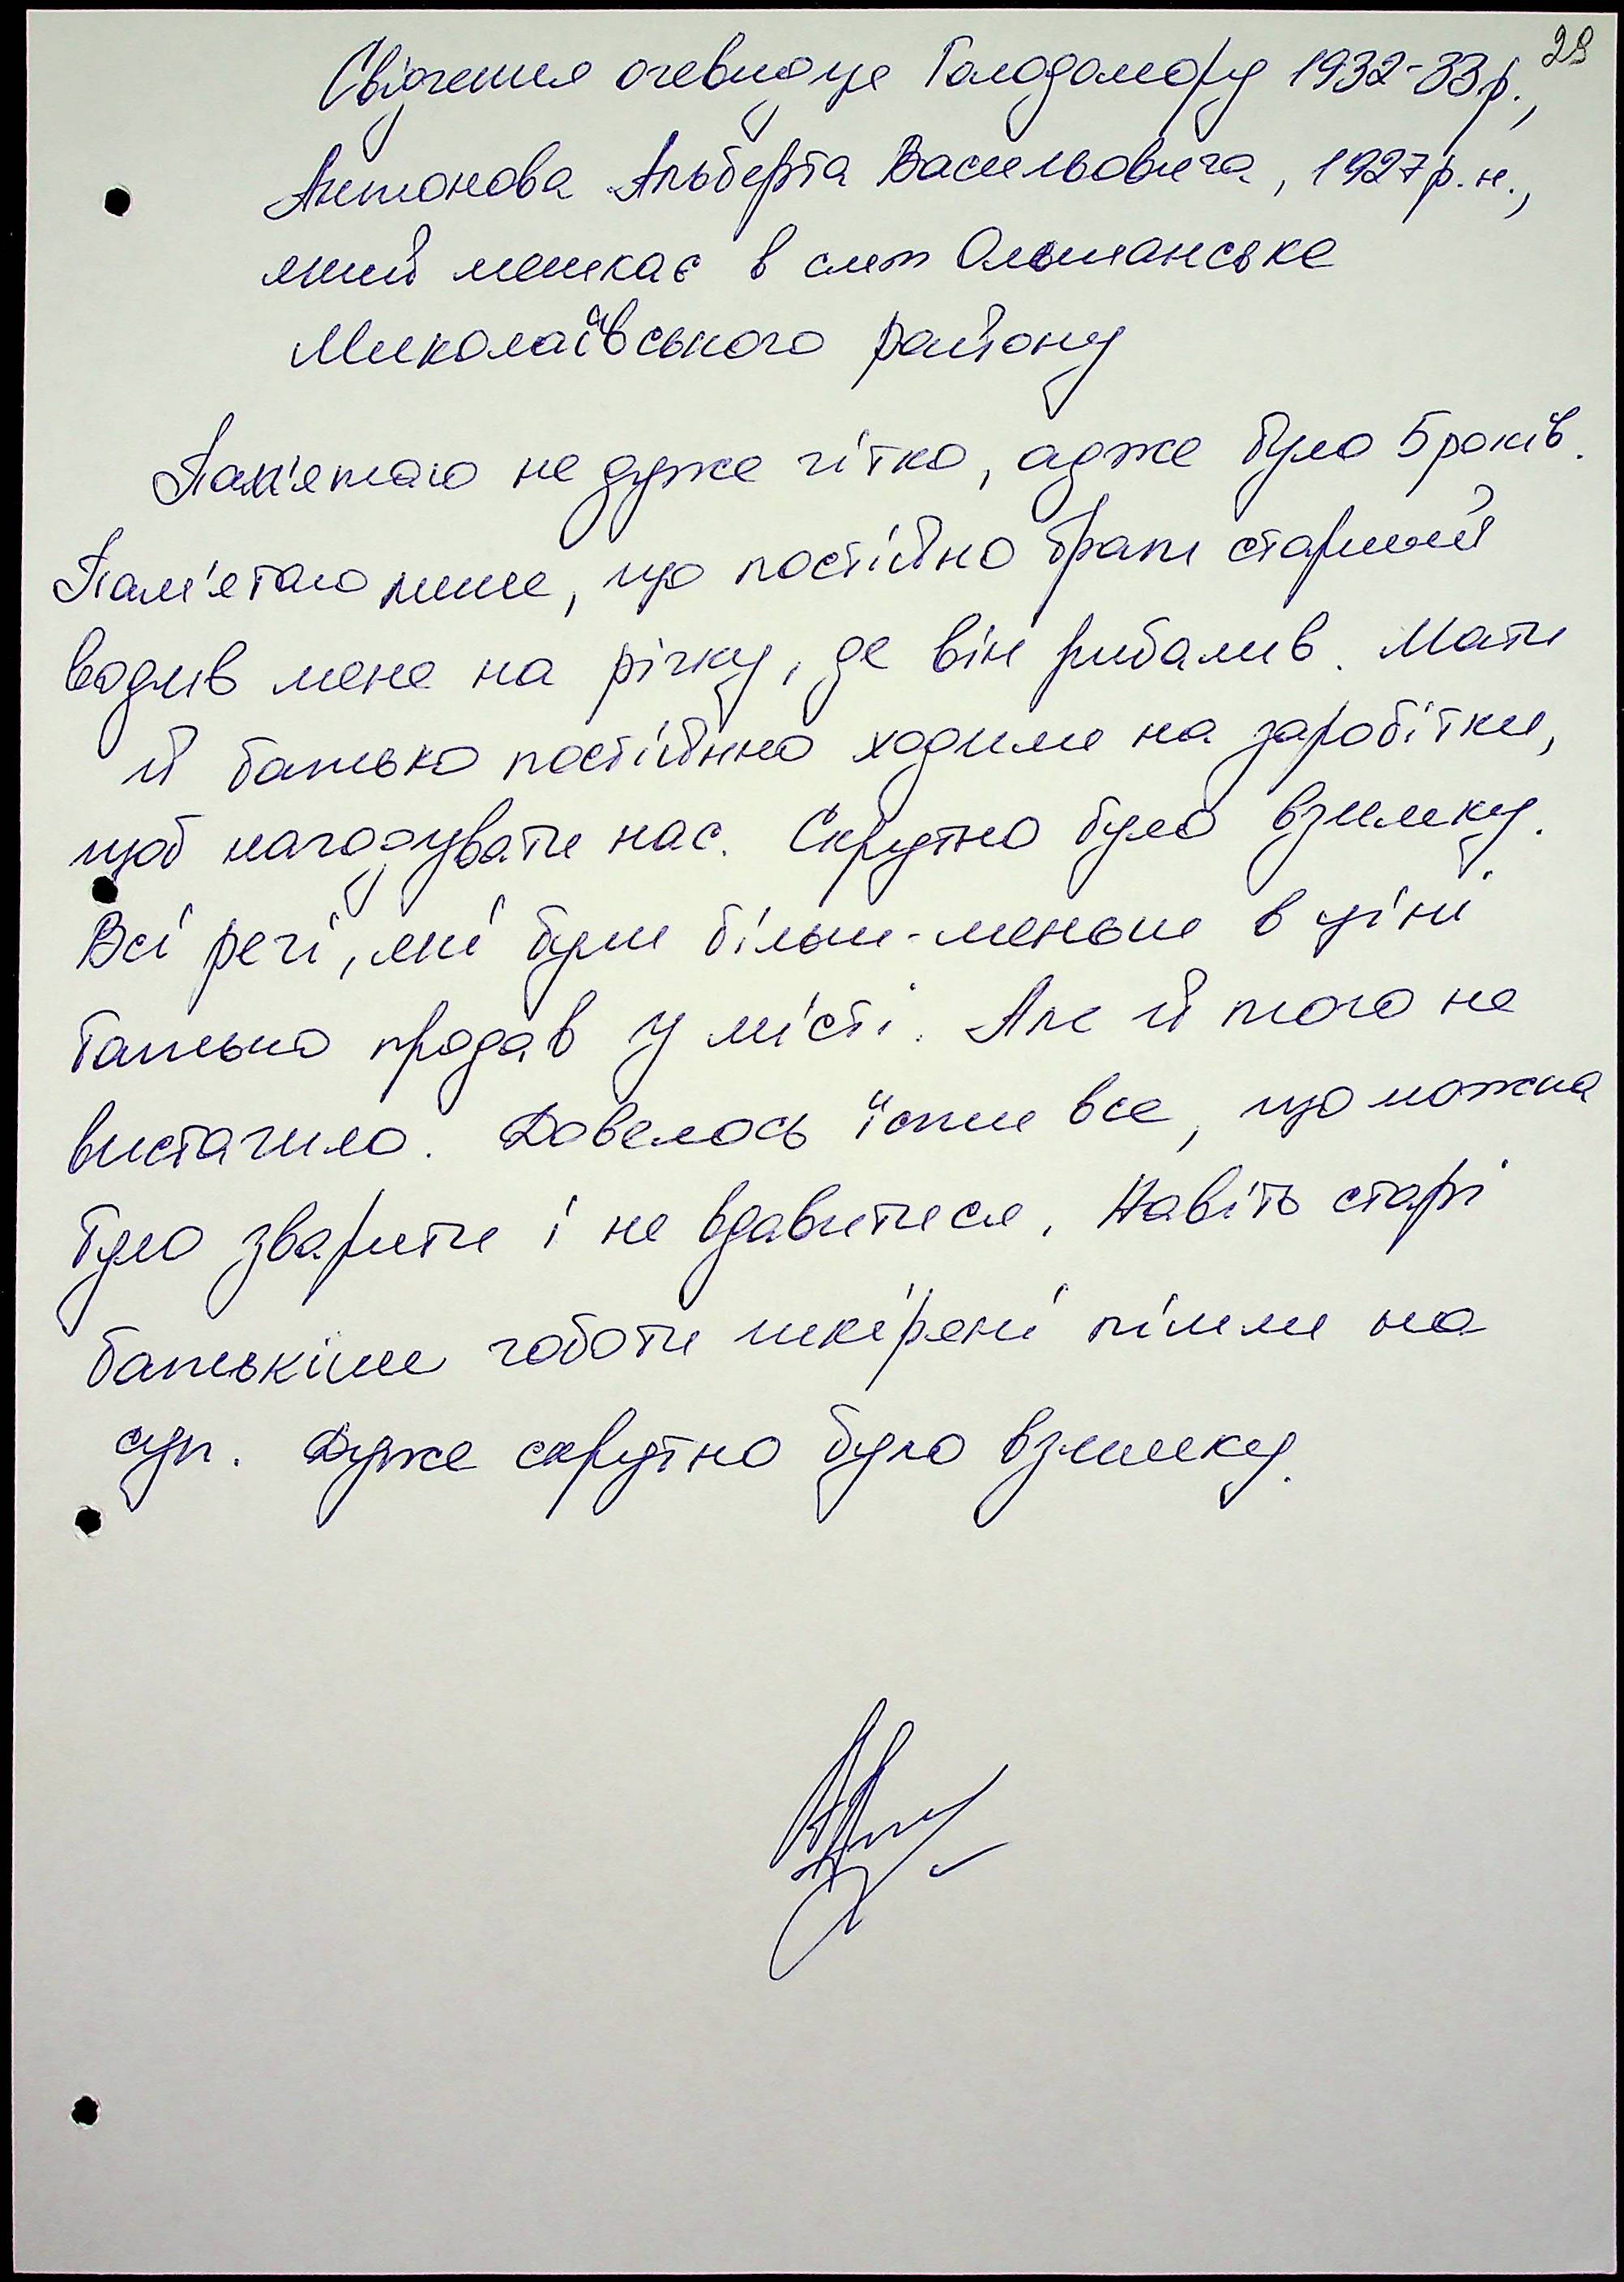 29
Свідчення очевидце Голодомору 1932-33р.,
Антонова Альберта Васильовича, 1927р.н.,
який мешкає в смт Ольшанське
Миколаївського району
Пам'ятаю не дуже чітко, адже було 5 років.
Пам'ятаю лише, що постійно брат старший
водив мене на річку, де він рибалив. Мати
й батько постійнно ходили на заробітки,
щоб нагодувати нас. Скрутно було взимку.
Всі речі, які були більш-меньше в ціні
батько продав у місті. Але й того не
вистачило. Довелось їсти все, що можна
було зварити і не вдавитися. Навіть старі
батькіни чоботи шкіряні пішли на
суп. Дуже скрутно було взимку.